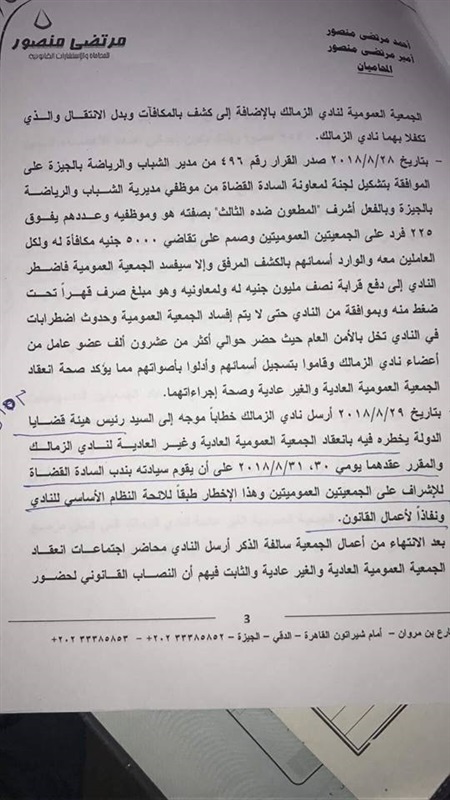 مرتضى منصور
للمحاماه والإستشارات القانونيه
أحمد مرتضى منصور
أمير مرتضى منصور
المحاميان
الجمعية العمومية لنادي الزمالك بالإضافة إلى كشف بالمكافآت وبدل الانتقال والذي
تكفلا بهما نادي الزمالك.
- بتاريخ ٢٠١٨/٨/٢٨ صدر القرار رقم ٤٩٦ من مدير الشباب والرياضة بالجيزة على
الموافقة بتشكيل لجنة لمعاونة السادة القضاة من موظفي مديرية الشباب والرياضة
بالجيزة وبالفعل أشرف "المطعون ضده الثالث" بصفته هو وموظفيه وعددهم يفوق
٢٢٥ فرد على الجمعيتين العموميتين وصمم على تقاضي ٥٠٠٠ جنيه مكافأة له ولكل
العاملين معه والوارد أسمائهم بالكشف المرفق وإلا سيفسد الجمعية العمومية فاضطر
النادي إلى دفع قرابة نصف مليون جنيه له ولمعاونيه وهو مبلغ صرف قهراً تحت
ضغط منه وبموافقة من النادي حتى لا يتم إفساد الجمعية العمومية وحدوث اضطرابات
في النادي تخل بالأمن العام حيث حضر حوالي أكثر من عشرون ألف عضو عامل من
أعضاء نادي الزمالك وقاموا بتسجيل أسمائهم وأدلوا بأصواتهم مما يؤكد صحة انعقاد
الجمعية العمومية العادية والغير عادية وصحة إجراءاتهما.
- بتاريخ ٢٠١٨/٨/٢٩ أرسل نادي الزمالك خطاباً موجه إلى السيد رئيس هيئة قضايا
الدولة يخطره فيه بانعقاد الجمعية العمومية العادية وغير العادية لنادي الزمالك
والمقرر عقدهما يومي ٣٠، ٢٠١٨/٨/٣١ على أن يقوم سيادته بندب السادة القضاة
للإشراف على الجمعيتين العموميتين وهذا الإخطار طبقاً للائحة النظام الأساسي للنادي
ونفاذاً لأعمال القانون.
بعد الانتهاء من أعمال الجمعية سالفة الذكر أرسل النادي محاضر اجتماعات انعقاد
الجمعية العمومية العادية والغير عادية والثابت فيهم أن النصاب القانوني لحضور
3
ارع بن مروان - أمام شيراتون القاهرة - الدقي - الجيزة - ٣٣٣٨٥٨٥٢ ٢٠٢+ - ٣٣٣٨٥٨٥٣ ٢٠٢+